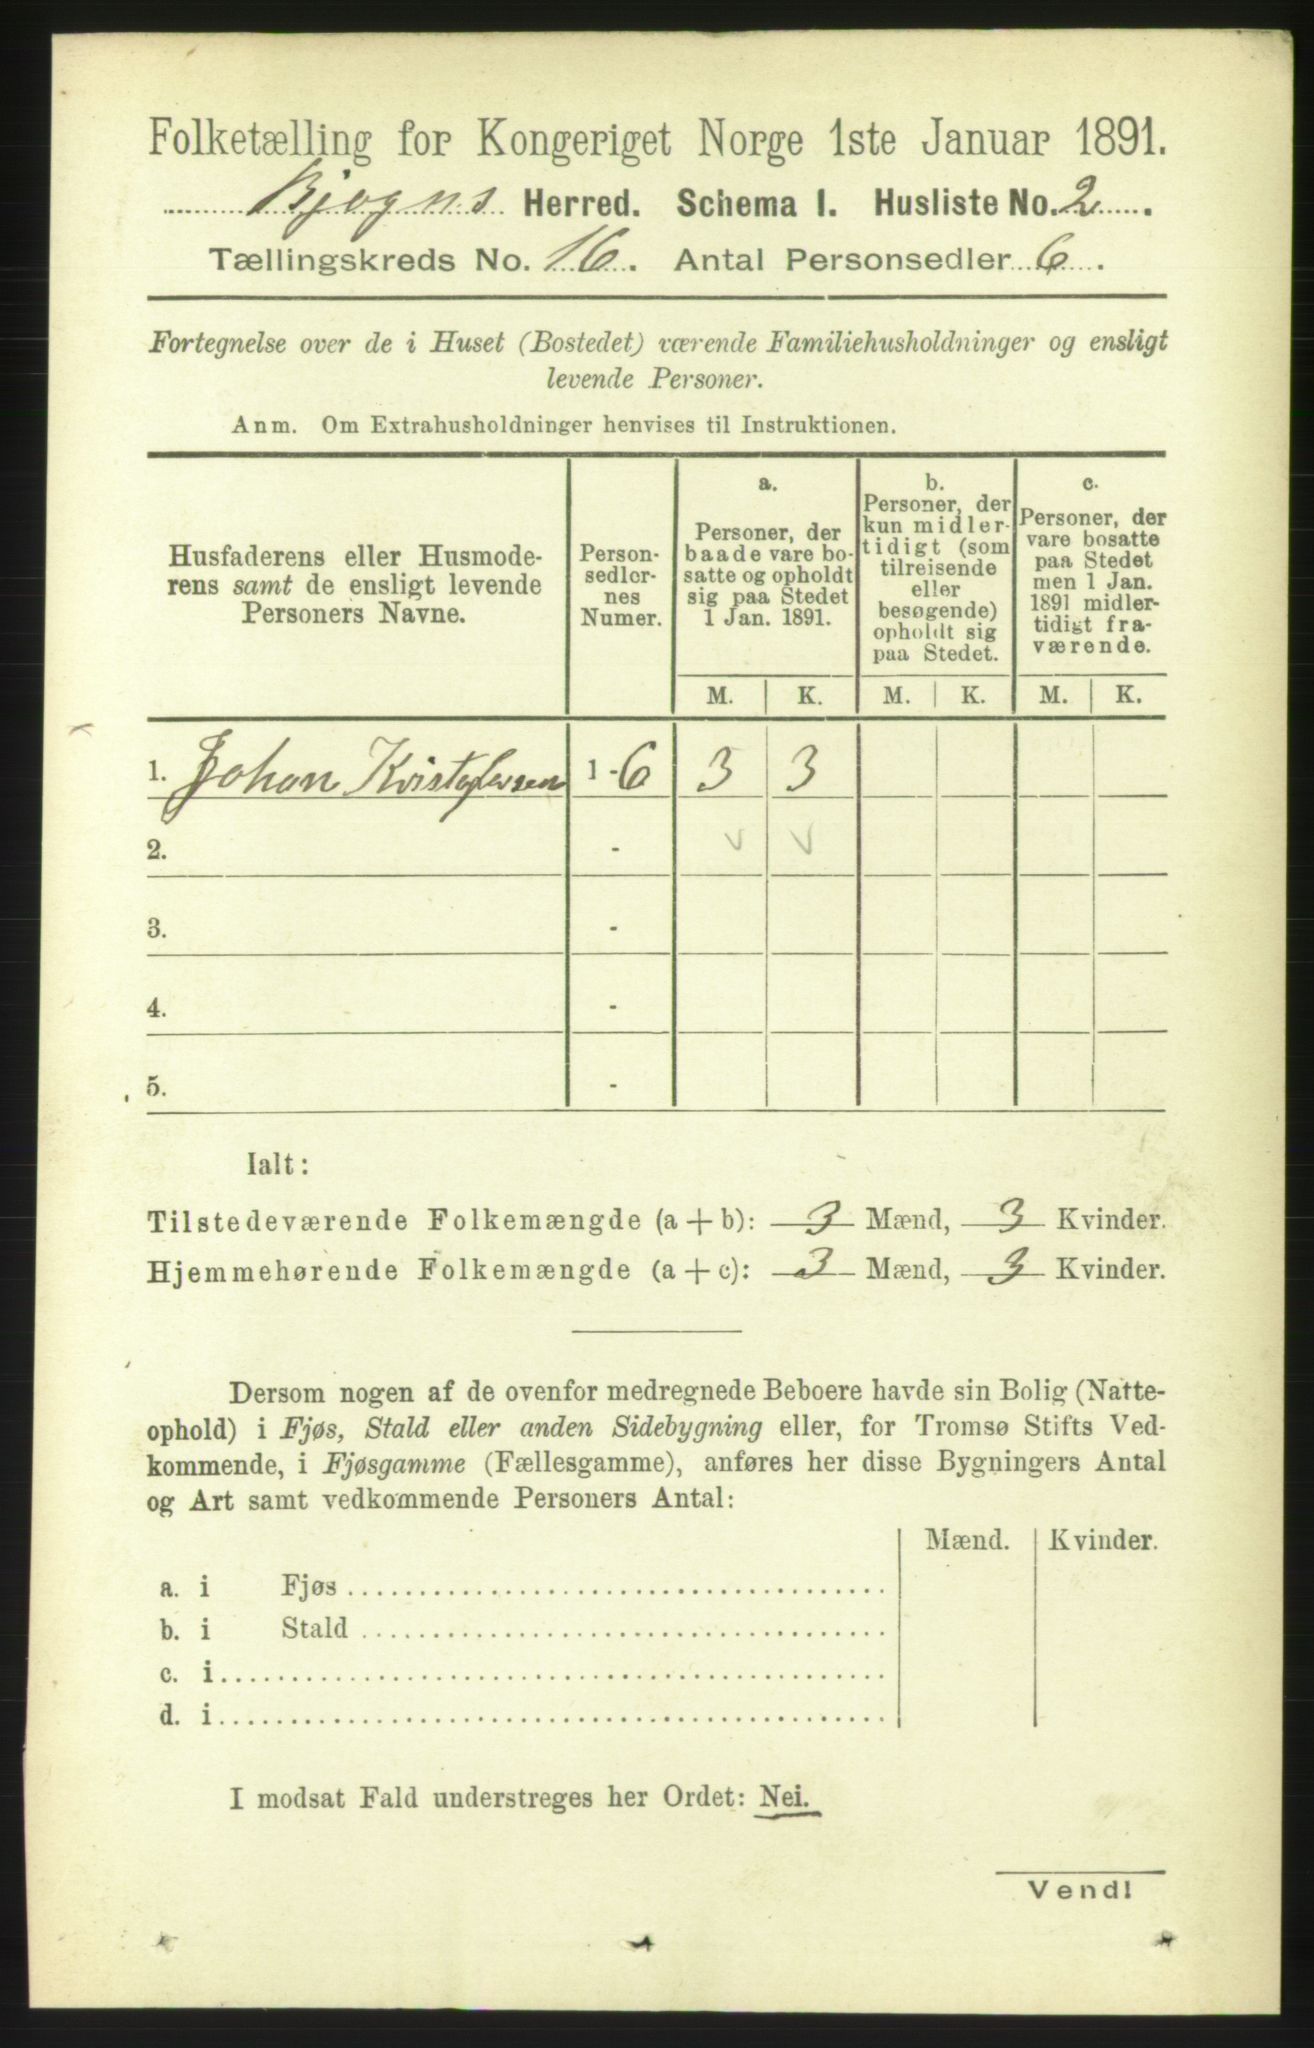 Folketælling for Kongeriget Norge 1ste Januar 1891.
Bjogns Herred. Schema I. Husliste No. 2.
Tællingskreds No. 16. Antal Personsedler 6.
Fortegnelse over de i Huset (Bostedet) værende Familiehusholdninger og ensligt
levende Personer.
Anm. Om Extrahusholdninger henvises til Instruktionen.
Husfaderens eller Husmode-
rens samt de ensligt levende
Personers Navne.
Person-
sedler-
nes
Numer.
a.
Personer, der
baade vare bo-
satte og opholdt
sig paa Stedet
1 Jan. 1891.
b.
Personer, der
kun midler-
tidigt (som
tilreisende
eller
besøgende)
opholdt sig
paa Stedet.
c.
Personer, der
vare bosatte
paa Stedet
men 1 Jan.
1891 midler-
tidigt fra-
værende.
M. K. M. K. M. K.
1. Johan Kristofersen 1 - 6 3 3
2. - v v
3. -
4. -
5. -
Ialt:
Tilstedeværende Folkemængde (a + b): 3 Mænd, 3 Kvinder.
Hjemmehørende Folkemængde (a + c): 3 Mænd, 3 Kvinder.
Dersom nogen af de ovenfor medregnede Beboere havde sin Bolig (Natte-
ophold) i Fjøs, Stald eller anden Sidebygning eller, for Tromsø Stifts Ved-
kommende, i Fjøsgamme (Fællesgamme), anføres her disse Bygningers Antal
og Art samt vedkommende Personers Antal:
Mænd. Kvinder.
a. i Fjøs
b. i Stald
c. i
d. i
I modsat Fald understreges her Ordet: Nei.
Vend!